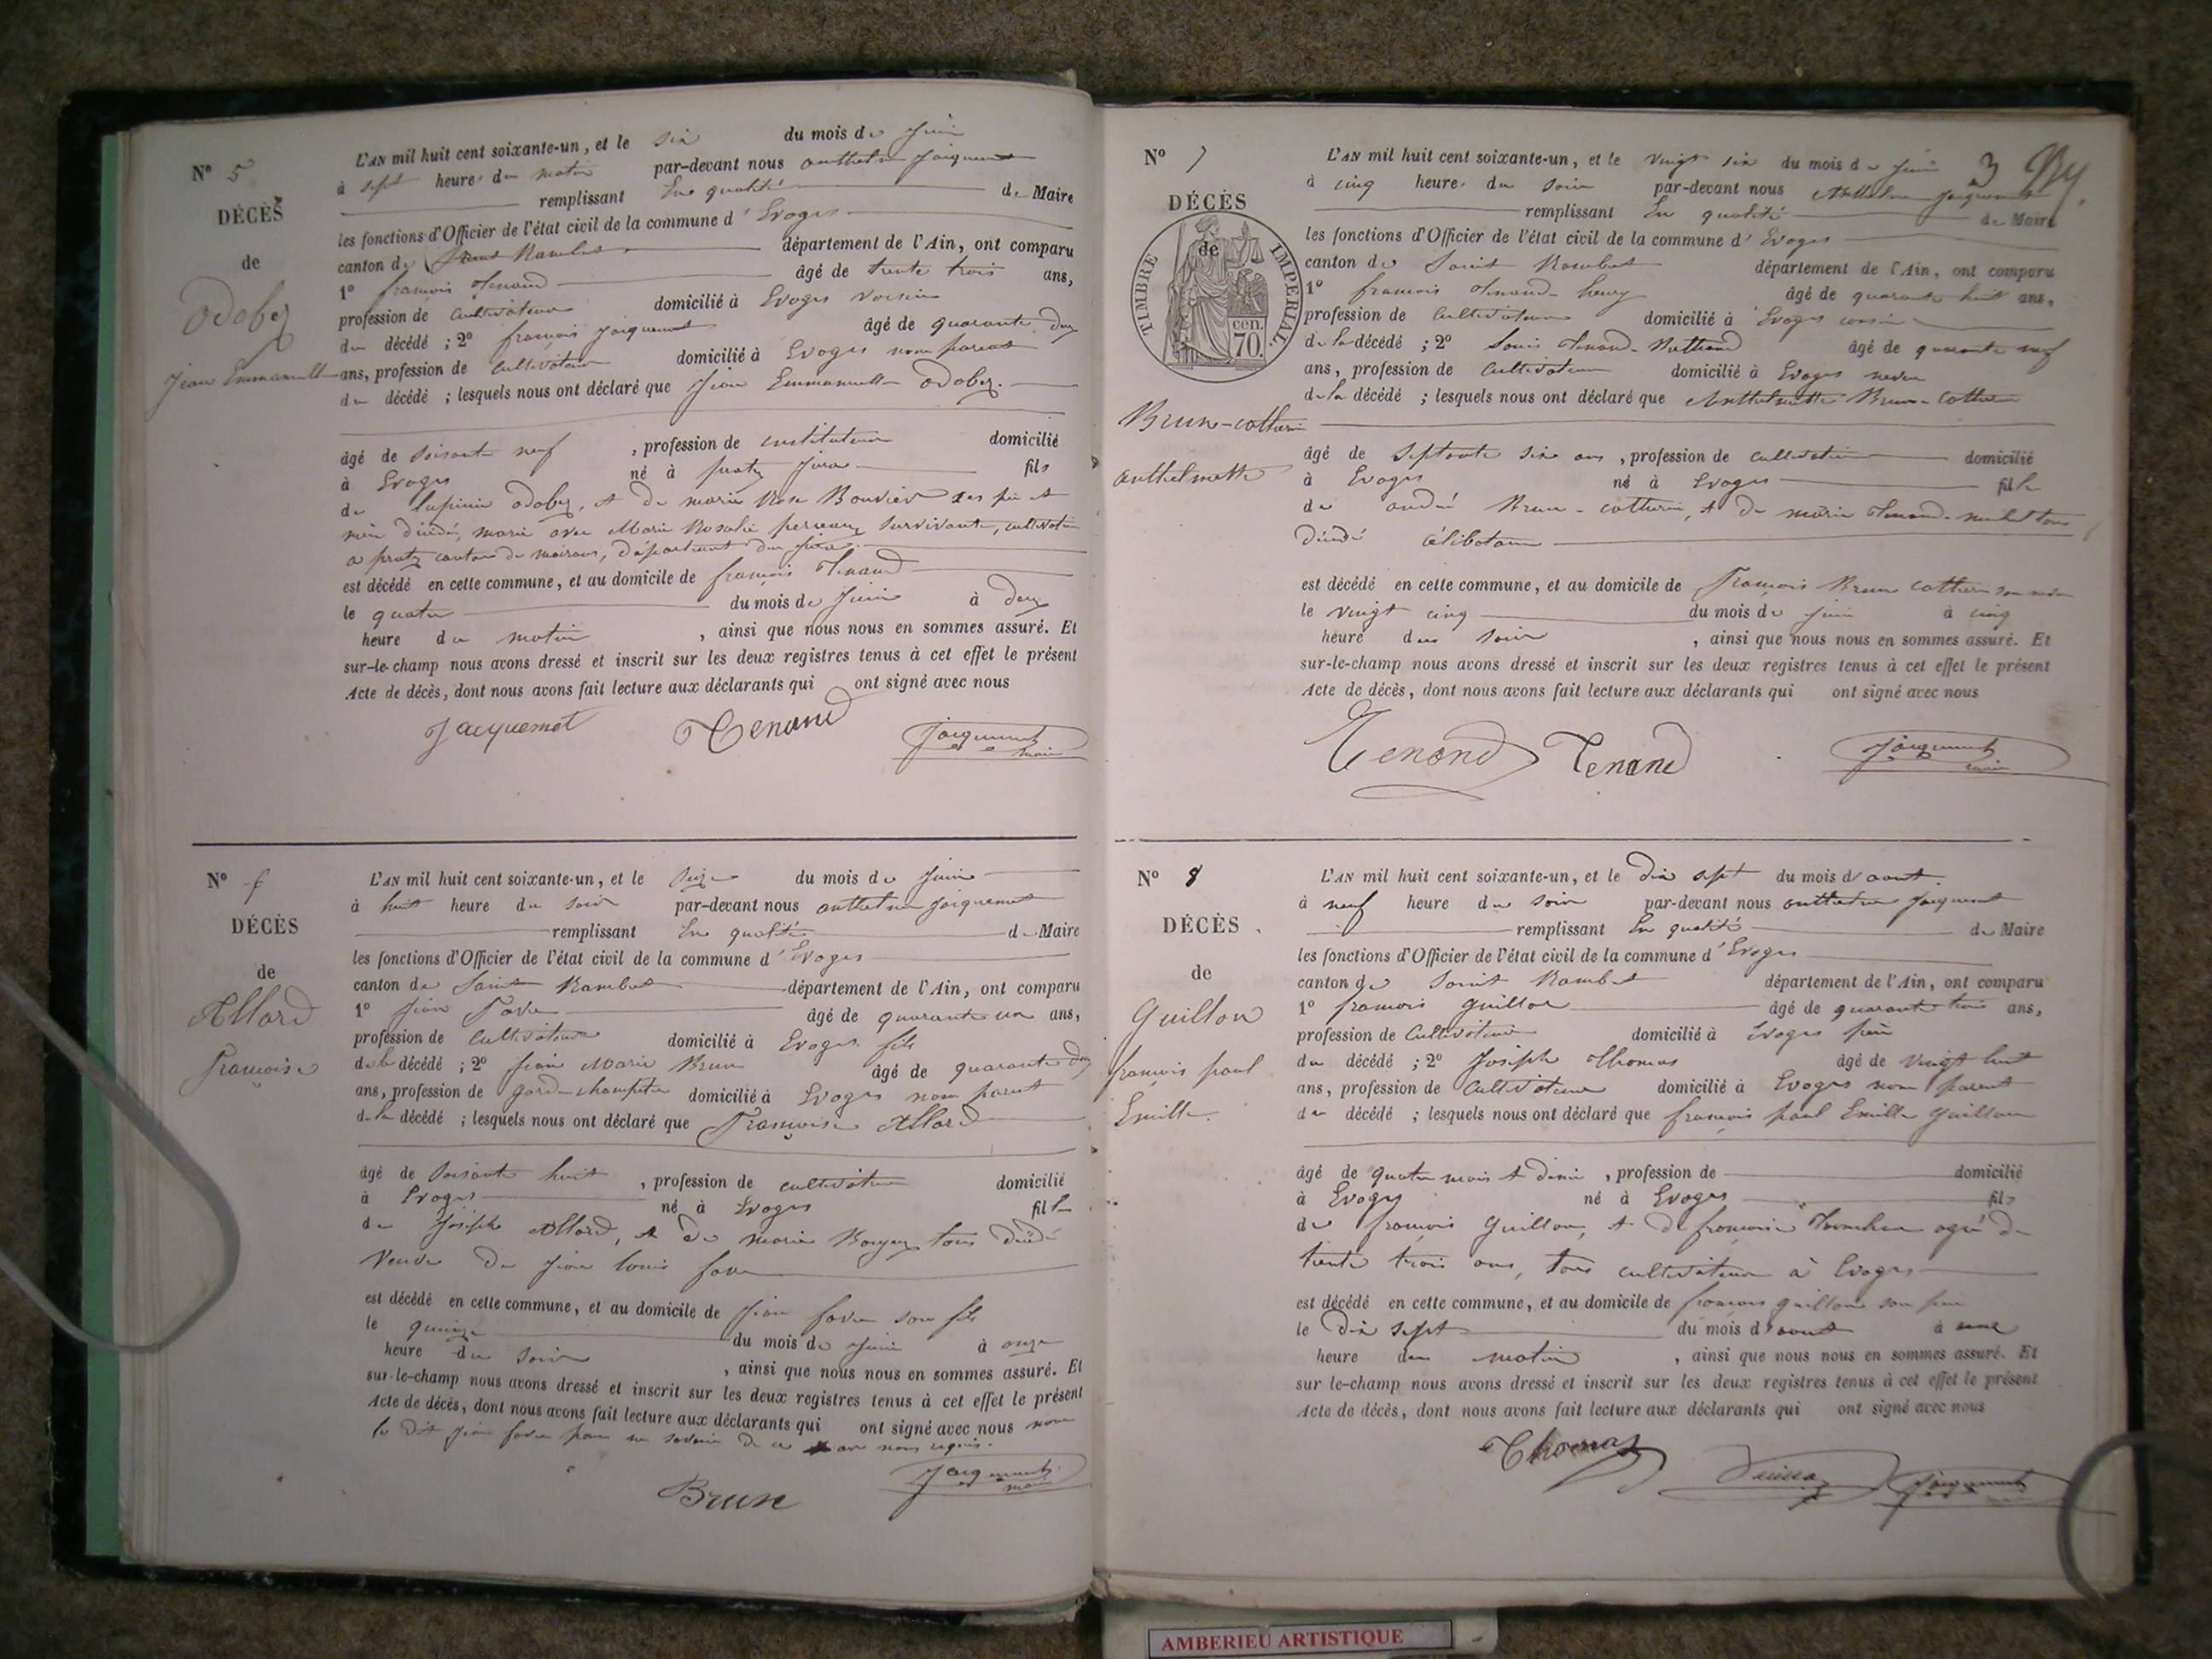 N° 5
DÉCÈS
de
Odobez
Jean Emmanuell
L'AN mil huit cent soixante-un, et le six du mois de Juin
à sept heures du matin par-devant nous anthelme Jacquemet
remplissant En qualité de Maire
les fonctions d'Officier de l'état civil de la commune d'Evoges
canton de Saint Rambert département de l'Ain, ont comparu
1° françois thenand âgé de trente trois ans,
profession de Cultivateur domicilié à Evoges voisin
du décédé ; 2° françois Jacquemet âgé de quarante deux
ans, profession de Cultivateur domicilié à Evoges non parent
du décédé ; lesquels nous ont déclaré que Jean Emmanuell Odobez.
âgé de soisante neuf , profession de instituteur domicilié
à Evoges né à pratz Jura fils
de Odobez, et de marie Rose Bouvier ses père et
mère décédés, marié avec Marie Rosalie survivante, cultivatrice
a pratz canton de moirans, Département du Jura.
est décédé en cette commune, et au domicile de françois thenand
le quatre du mois de Juin à deux
heure du matin , ainsi que nous nous en sommes assuré. Et
sur-le-champ nous avons dressé et inscrit sur les deux registres tenus à cet effet le présent
Acte de décès, dont nous avons fait lecture aux déclarants qui ont signé avec nous
Jacquemet Tenand Jacquemet maire
N° 6
DÉCÈS
de
Allard
françoise
L'AN mil huit cent soixante-un, et le seize du mois de Juin
à huit heure du soir par-devant nous anthelme Jacquemet
remplissant En qualité de Maire
les fonctions d'Officier de l'état civil de la commune d'Evoges
canton de Saint Rambert département de l'Ain, ont comparu
1° Jean Favre âgé de quarante un ans,
profession de Cultivateur domicilié à Evoges fils
de la décédé ; 2° Jean Marie Brun âgé de quarante deux
ans, profession de garde-champêtre domicilié à Evoges non parent
de la décédé ; lesquels nous ont déclaré que Françoise Allard
âgé de soisante huit , profession de cultivatrice domicilié
à Evoges né à Evoges fille
de Joseph Allard, et de marie tous décédé
Veuve de Jean louis favre
est décédé en cette commune, et au domicile de Jean favre son fils
le quinze du mois de Juin à onze
heure du soir , ainsi que nous nous en sommes assuré. Et
sur-le-champ nous avons dressé et inscrit sur les deux registres tenus à cet effet le présent
Acte de décès, dont nous avons fait lecture aux déclarants qui ont signé avec nous non
le dit Jean favre pour ne savoir de ce par nous requis.
Brun Jacquemet maire
3
N° 7
DÉCÈS
de
TIMBRE IMPERIAL
70 cen.
Brun-cottier
anthelmette
L'AN mil huit cent soixante-un, et le vingt six du mois de Juin
à cinq heures du soir par-devant nous Anthelme Jacquemet
remplissant En qualité de Maire
les fonctions d'Officier de l'état civil de la commune d'Evoges
canton de Saint Rambert département de l'Ain, ont comparu
1° françois thenand-henry âgé de quarante huit ans,
profession de Cultivateur domicilié à Evoges cousin
de la décédé ; 2° Louis thenand- âgé de quarante neuf
ans, profession de Cultivateur domicilié à Evoges neveu
de la décédé ; lesquels nous ont déclaré que Anthelmette Brun-Cottier
âgé de septante six ans , profession de cultivatrice domicilié
à Evoges né à Evoges fille
de andré Brun-cottier, et de marie thenand- tous
décédé célibataire
est décédé en cette commune, et au domicile de françois Brun Cottier son neveu
le vingt cinq du mois de Juin à cinq
heure du soir , ainsi que nous nous en sommes assuré. Et
sur-le-champ nous avons dressé et inscrit sur les deux registres tenus à cet effet le présent
Acte de décès, dont nous avons fait lecture aux déclarants qui ont signé avec nous
Tenand Tenand Jacquemet maire
N° 8
DÉCÈS
de
Guillon
françois paul
Emille.
L'AN mil huit cent soixante-un, et le Dix sept du mois d'aout
à neuf heure du soir par-devant nous anthelme Jacquemet
remplissant En qualité de Maire
les fonctions d'Officier de l'état civil de la commune d'Evoges
canton de Saint Rambert département de l'Ain, ont comparu
1° françois Guillon âgé de quarante trois ans,
profession de Cultivateur domicilié à Evoges père
du décédé ; 2° Joseph Thomas âgé de vingt huit
ans, profession de Cultivateur domicilié à Evoges non parent
du décédé ; lesquels nous ont déclaré que françois paul Emille Guillon
âgé de quatre mois et demi , profession de domicilié
à Evoges né à Evoges fils
de françois Guillon, et de françoise agé de
trente trois ans, tous cultivateur à Evoges
est décédé en cette commune, et au domicile de françois guillon son père
le Dix sept du mois d'aout à une
heure du matin , ainsi que nous nous en sommes assuré. Et
sur le-champ nous avons dressé et inscrit sur les deux registres tenus à cet effet le présent
Acte de décès, dont nous avons fait lecture aux déclarants qui ont signé avec nous
Thomas Jacquemet
AMBERIEU ARTISTIQUE